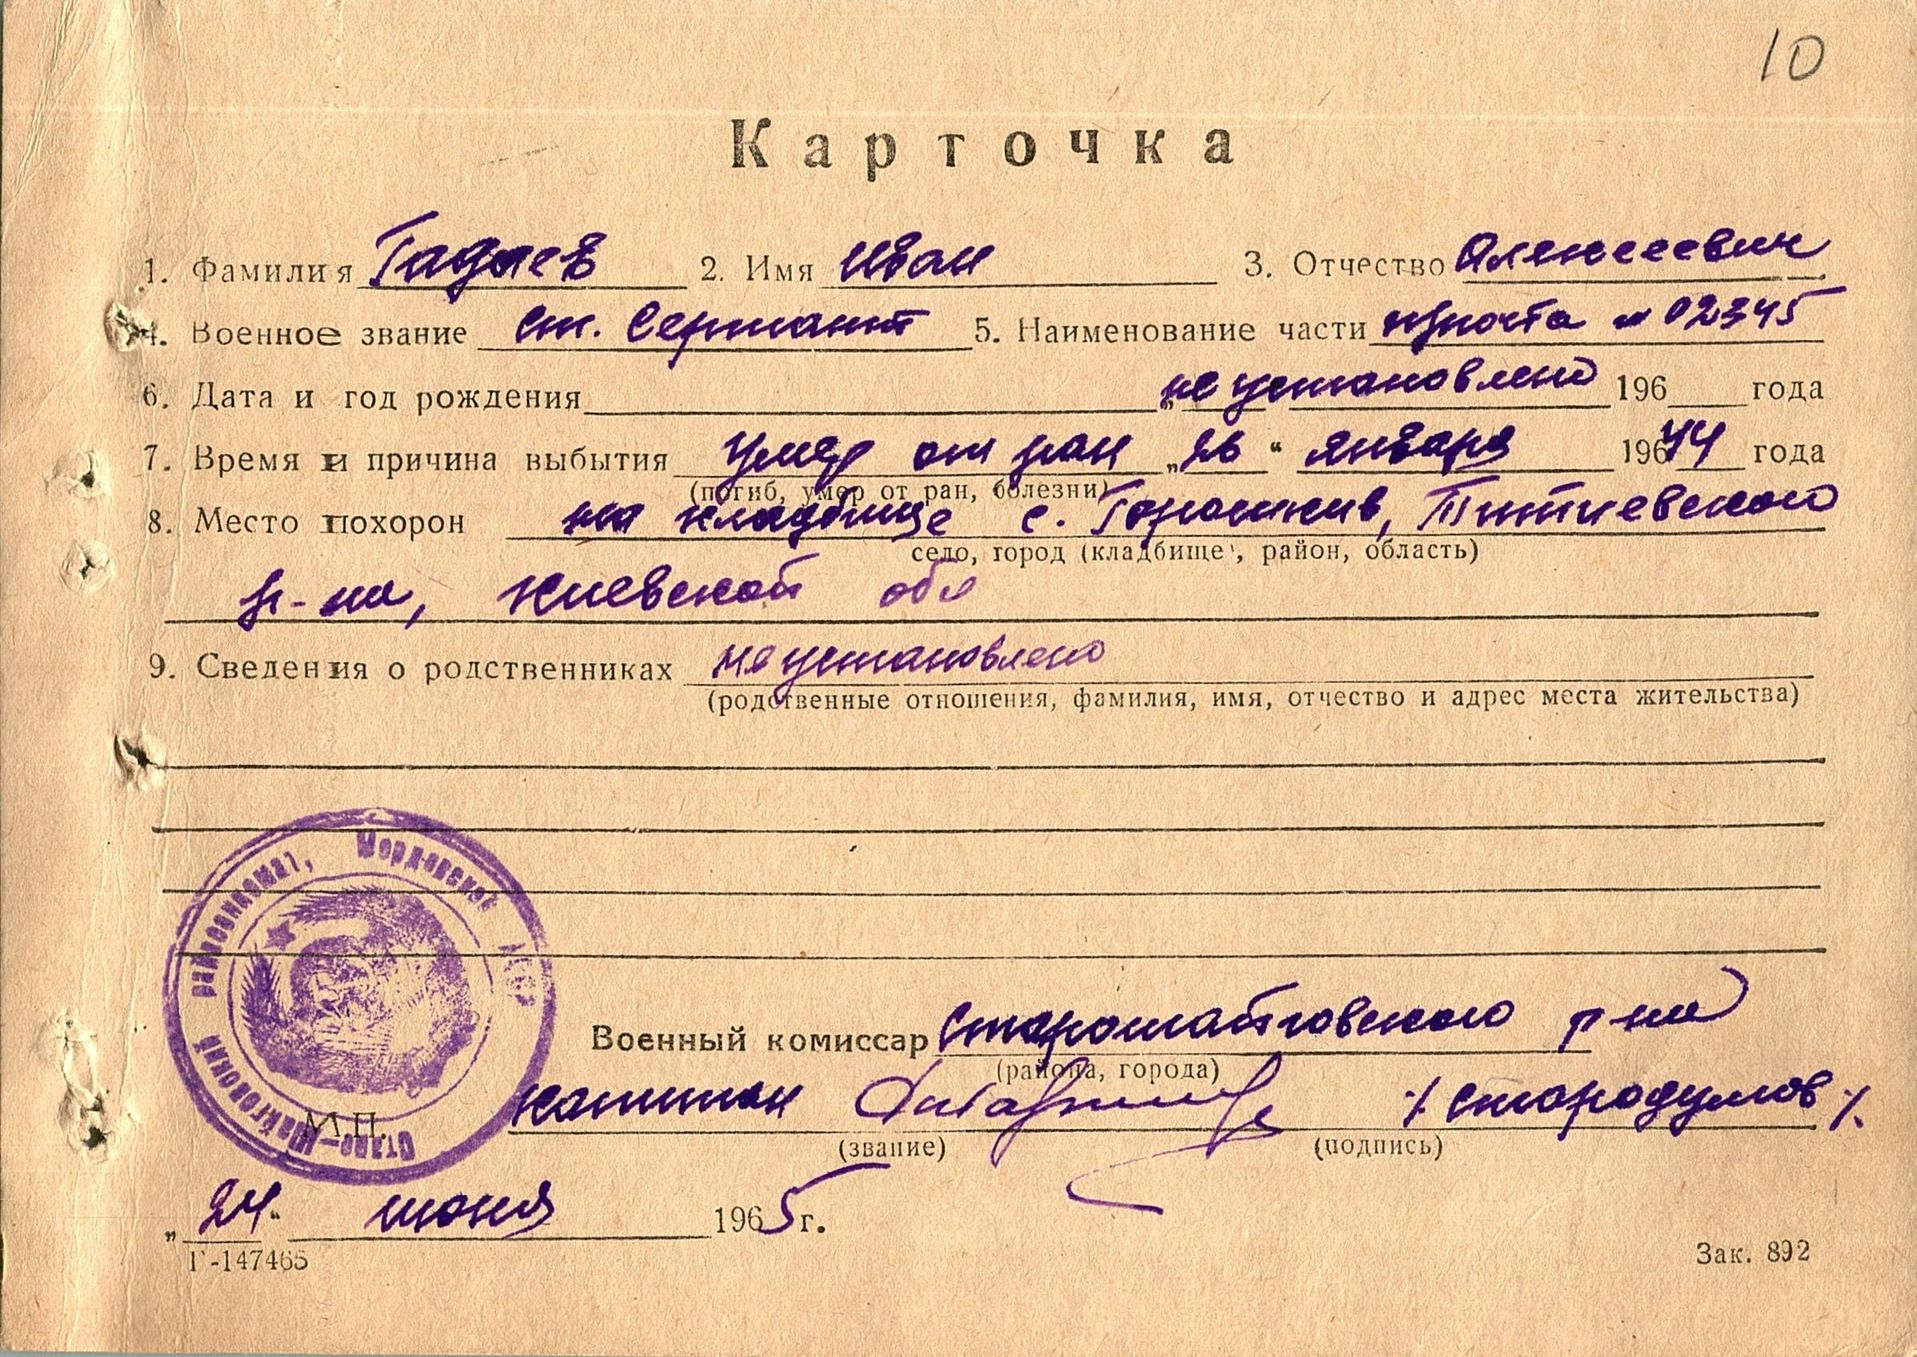 10
Карточка
1. Фамилия Гадаев 2. Имя Иван 3. Отчество Алексеевич
4. Военное звание ст. Сержант 5. Наименование части п/почта № 02345
6. Дата и год рождения „не установлено 196 года
7. Время и причина выбытия умер от ран „26“ января 19644 года
(погиб, умер от ран, болезни)
8. Место похорон на кладбище с. Горошков, Титиевского
село, город (кладбище, район, область)
р-на, Киевской обл
9. Сведения о родственниках не установлено
(родственные отношения, фамилия, имя, отчество и адрес места жительства)
Старо-Шайговский райвоенкомат, Мордовской АССР
Военный комиссар Старошайговского р-на
(района, города)
М.П. капитан /Стародумов/.
(звание) (подпись)
„24“ июня 1965 г.
Г-147465 Зак. 892